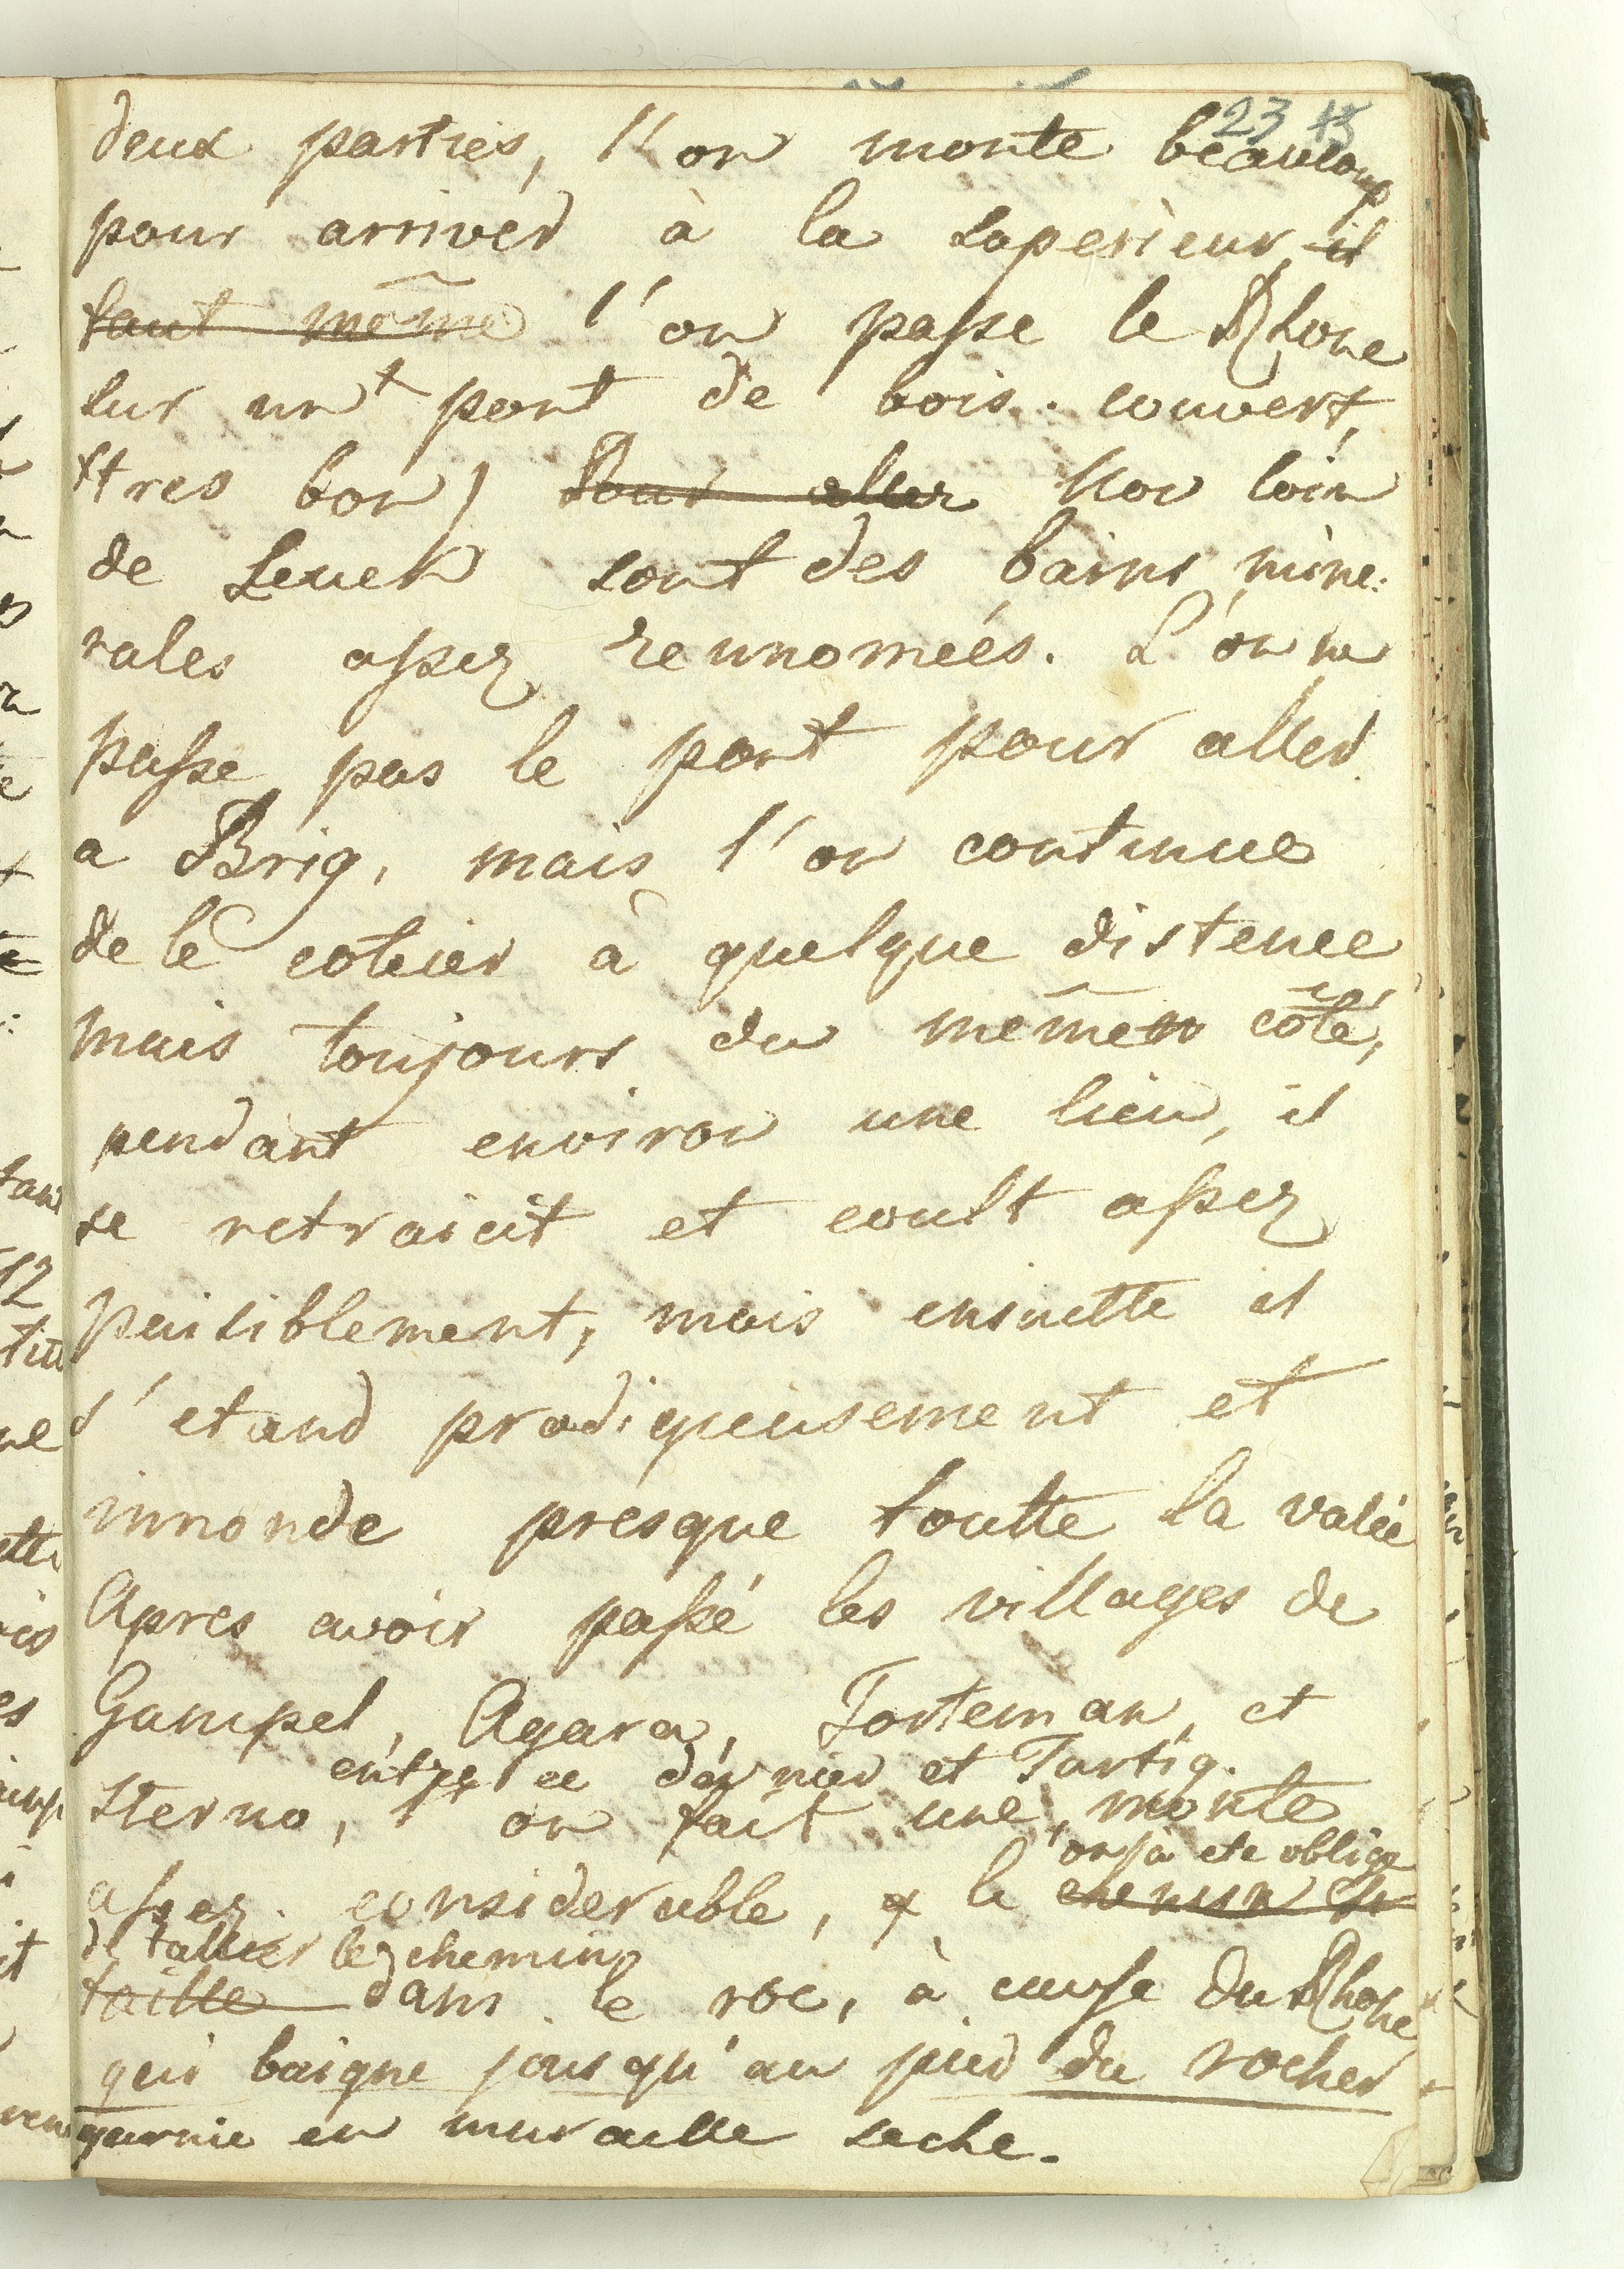 23
deux parties, l'on monte beaucoup
pour arriver à la superieur, il
faut même l'on passe le Rhone
sur un pont de bois couvert,
tres bon) Pour aller Non loin
de Leuck sont des bains mine:
rales assez rennomées. L'on ne
passe pas le pont pour aller
a Brig, mais l'on continue
de le cotier à quelque distence
mais toujours du même coté,
pendant environ une lieu, il
se retraicit et coult assez
paisiblement, mais ensuitte il
s'etand prodigieusement et
innonde presque toutte la valée
Apres avoir passé les villages de
Gampel, Agara, Torteman, et
entre ce dernier et Turtig.
Sterno, l'on fait une monte
l'on a ete oblige
assez considerable, & le chemin est
de tallier le chemin
taille dans le roc, à cause du Rhone
qui baigne jousqu'au pied du rocher
garnie en muraille seche.